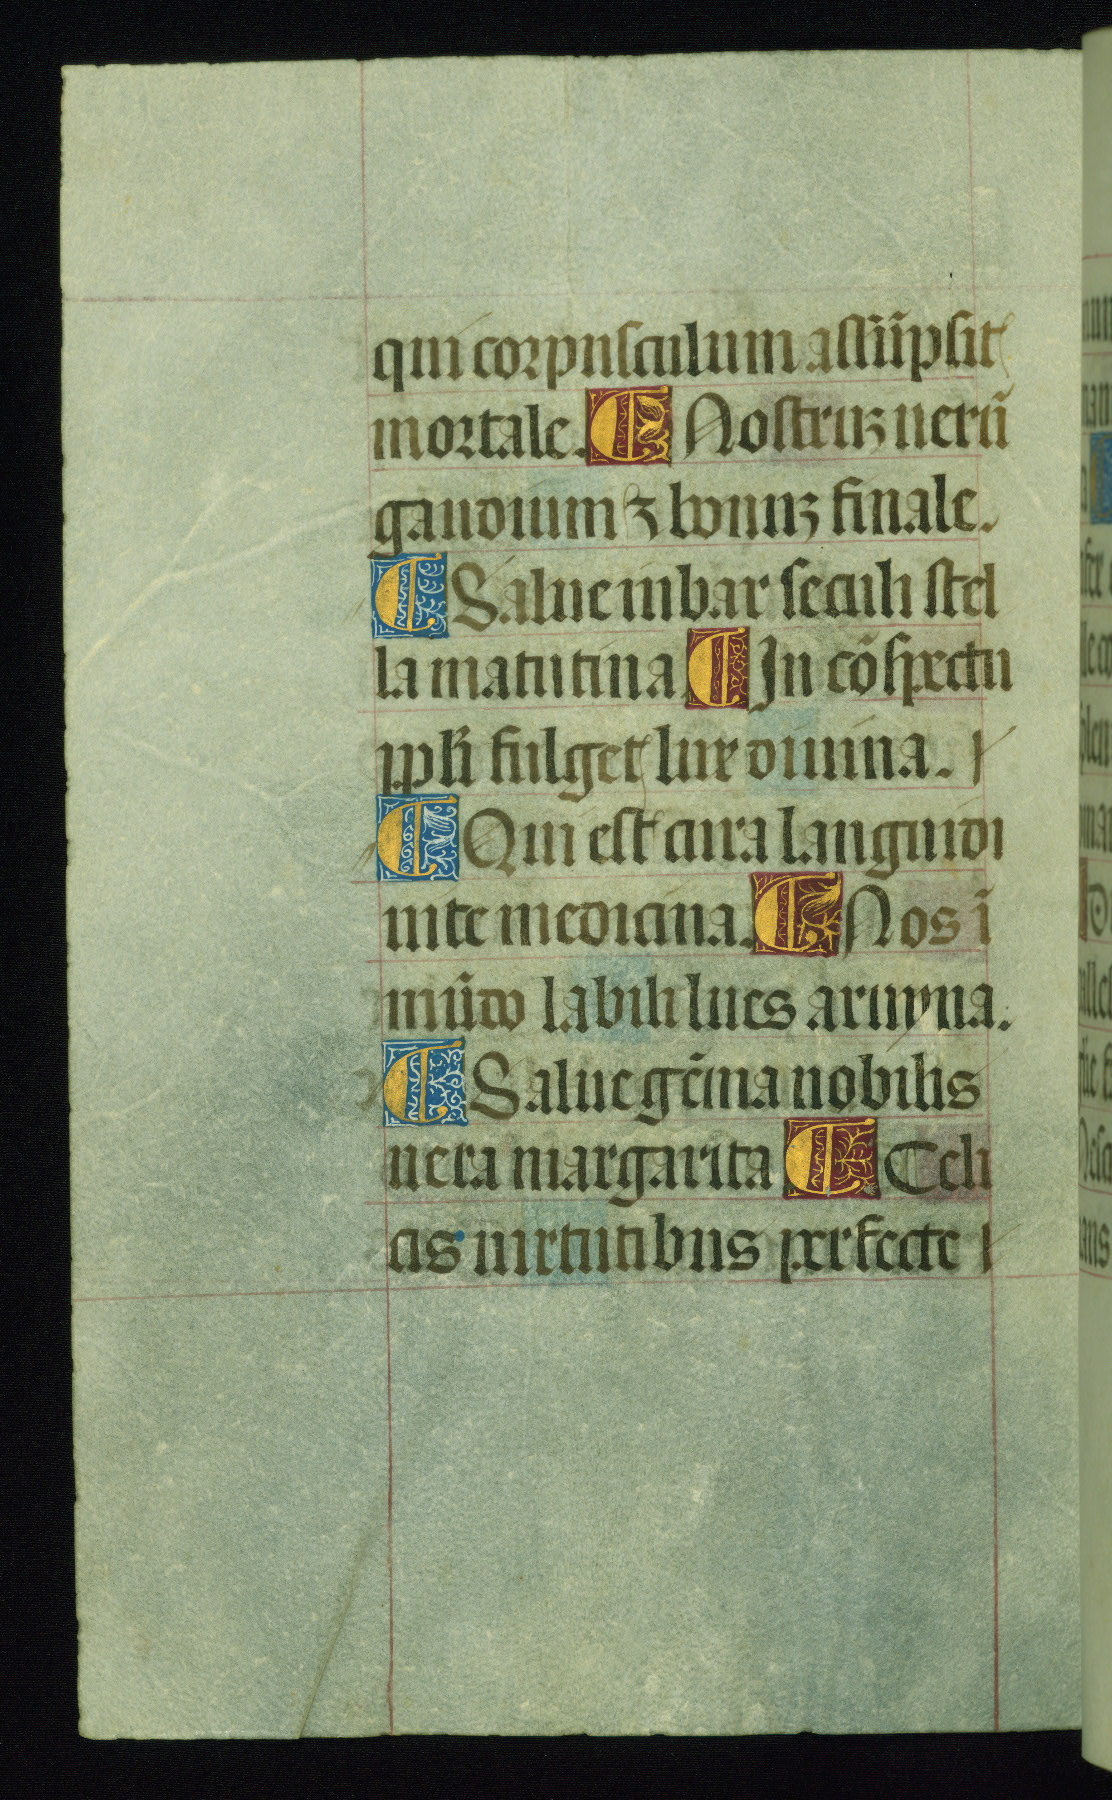 qui corpusculum assũpsit
mortale. Nostruꝫ uerũ
gaudium ⁊ bonuꝫ finale.
Salue iubar seculi stel
la matutina In cõspectu
ppl̃i fulget lux diuina.
Qui est cura languidi
uite medicina. Nos ĩ
mũdo labili lues aruyna.
Salue gẽma nobilis
uera margarita Celi
cis uirtutibus perfecte